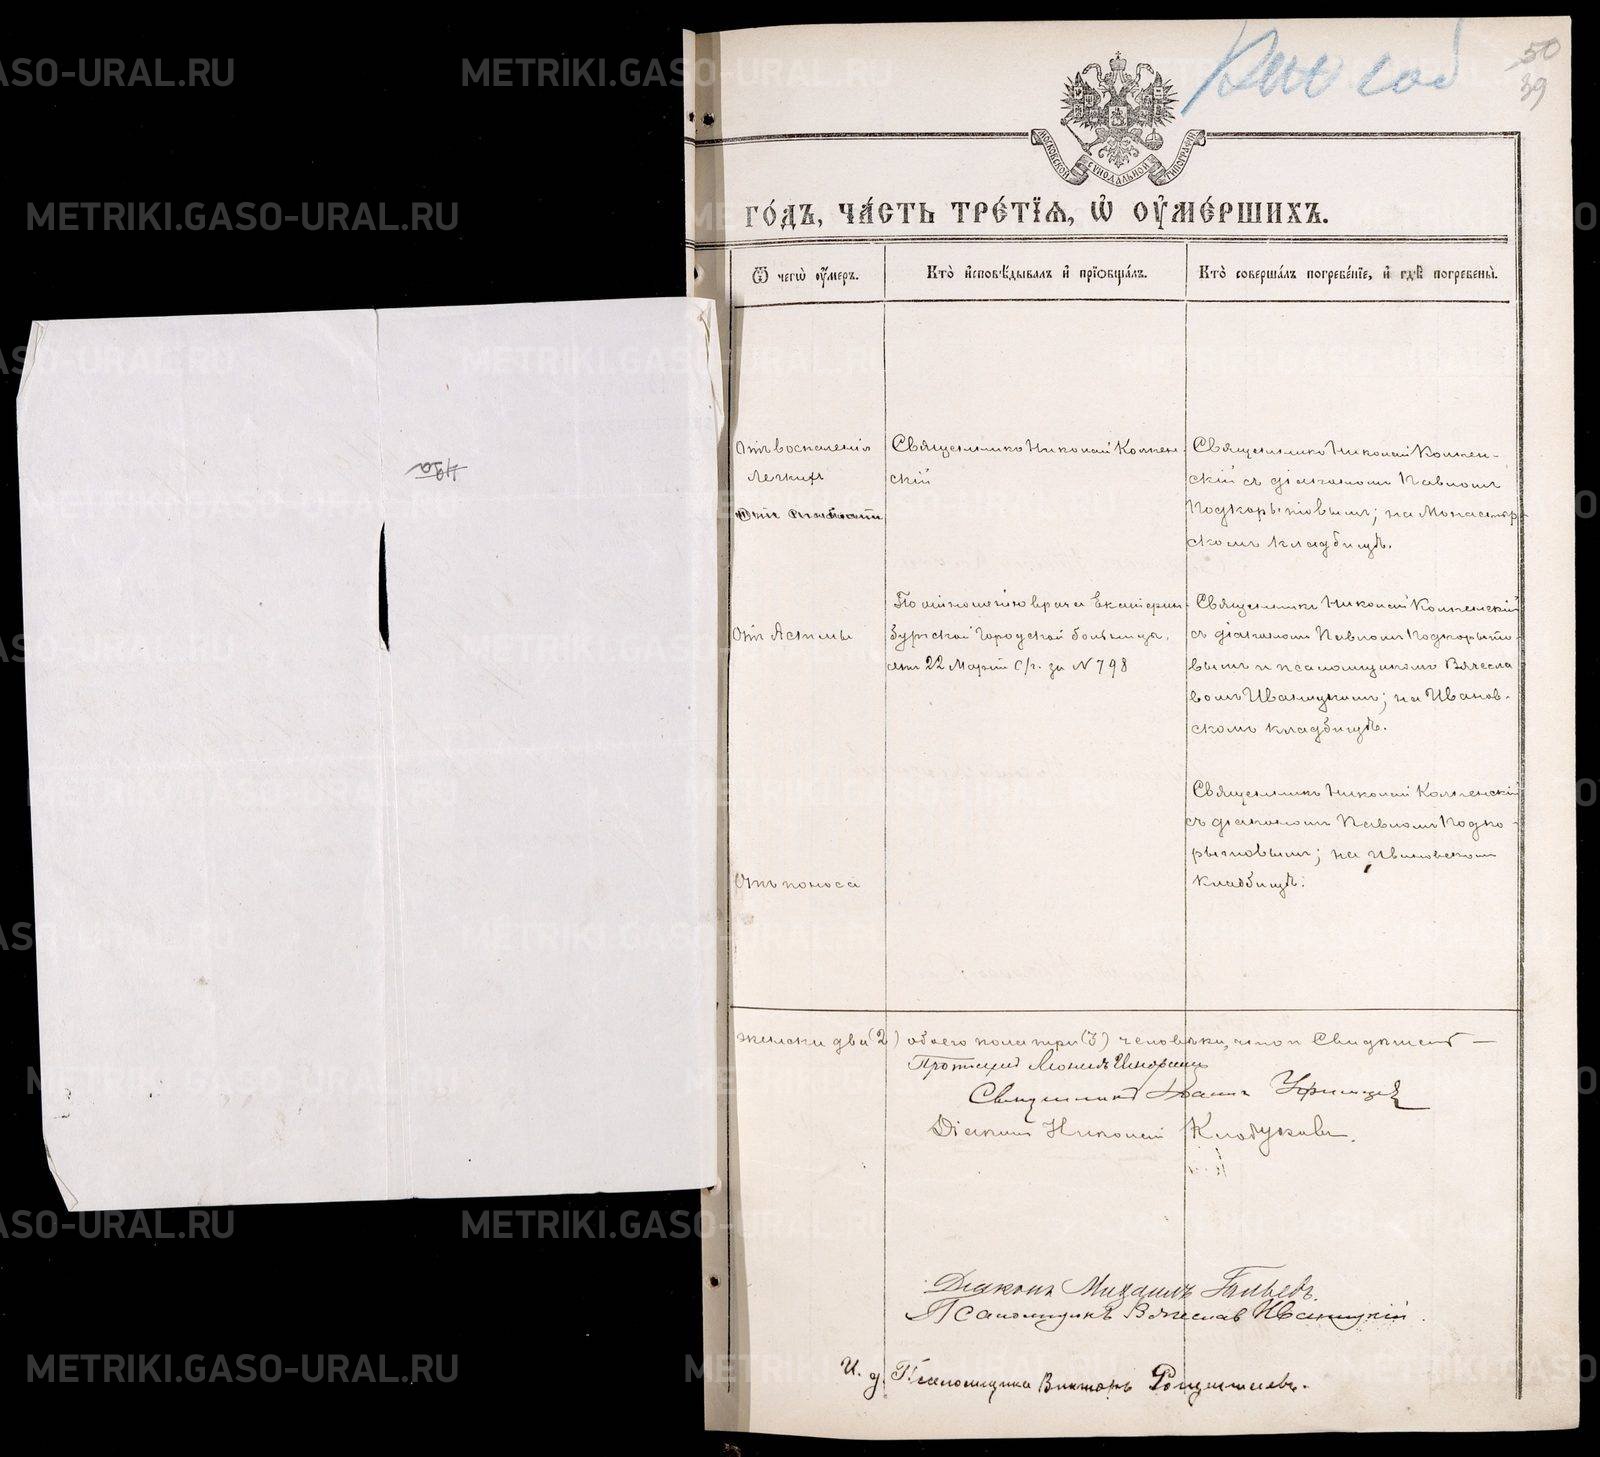 50
39
МОСКОВСКОЙ СѴНОДАЛЬНОЙ ТИПОГРАФІИ
го́дъ, ча́сть тре́тїѧ, ѡ҆ ᲂу҆ме́ршихъ.
Ѿ чегѡ̀ ᲂу҆́меръ.
Кто̀ и҆сповѣ́дывалъ и҆ прїѡбща́лъ.
Кто̀ соверша́лъ погребе́нїе, и҆ гдѣ̀ погребены̀.
Отъ воспаленія
легкихъ
Священникъ Николай Колтен-
скій
Священникъ Николай Колтен-
скій съ діакономъ Павломъ
Подкорытовымъ; на Монастыр-
скомъ кладбищѣ.
Отъ Астмы
По отношенію врача Екатерин-
бургской Городской больницы,
отъ 22 Марта с/г. за № 798
Священникъ Николай Колтенскій
съ діакономъ Павломъ Подкорыто-
вымъ и псаломщикомъ Вячесла
вомъ Иваницкимъ; на Иванов-
скомъ кладбищѣ.
Отъ поноса
Священникъ Николай Колтенскій
съ діакономъ Павломъ Подко-
рытовымъ; на Ивановскомъ
кладбищѣ.
женска два (2) обоего пола три (3) человѣка, что и Свидѣтельст—
Протоіерей Леонидъ
Священникъ Іоаннъ
Діаконъ Николай Клобуковъ.
Діаконъ Михаилъ
Псаломщикъ Вячеславъ Иваницкій.
И. д. Псаломщика Викторъ
49а
METRIKI.GASO-URAL.RU